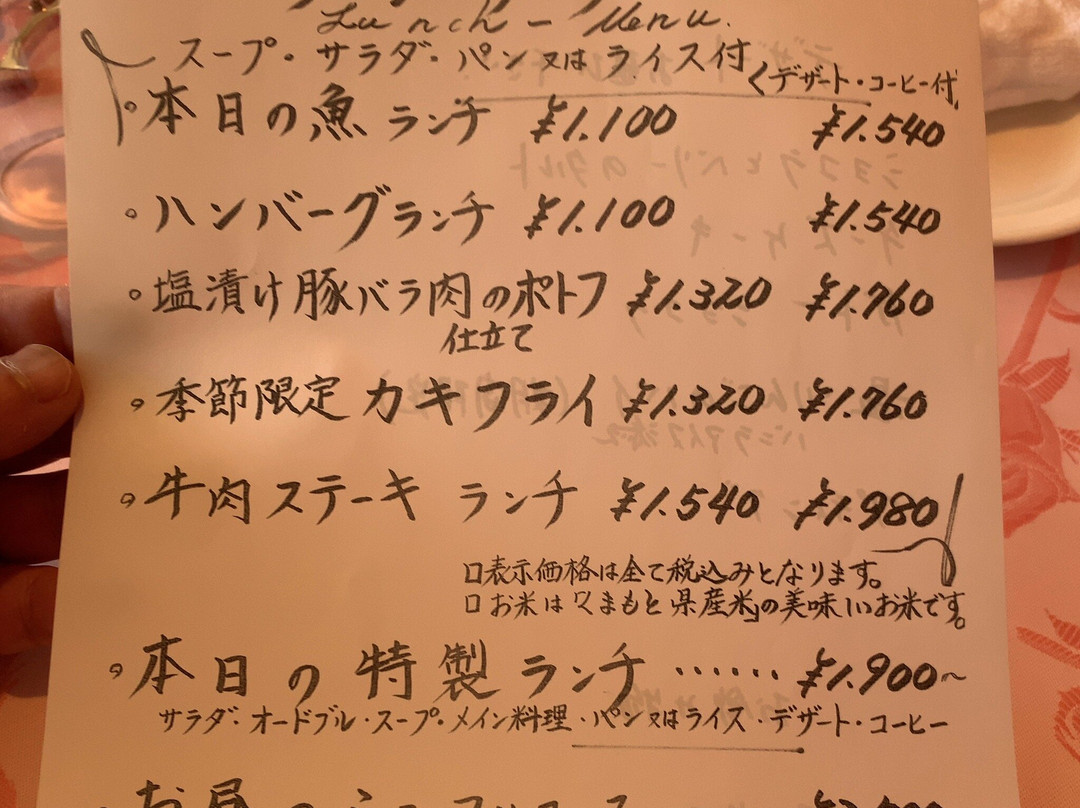 Lunch - Menu.
スープ・サラダ・パン又はライス付
くデザート・コーヒー付
本日の魚ランチ ¥1.100 ¥1.540
ハンバーグランチ ¥1.100 ¥1.540
塩漬け豚バラ肉のポトフ ¥1.320 ¥1.760
仕立て
季節限定 カキフライ ¥1.320 ¥1.760
牛肉ステーキ ランチ ¥1.540 ¥1.980
□表示価格は全て税込みとなります。
□お米は「くまもと県産米」の美味しいお米です。
本日の特製ランチ ‥‥‥ ¥1.900~
サラダ・オードブル・スープ・メイン料理・パン又はライス・デザート・コーヒー